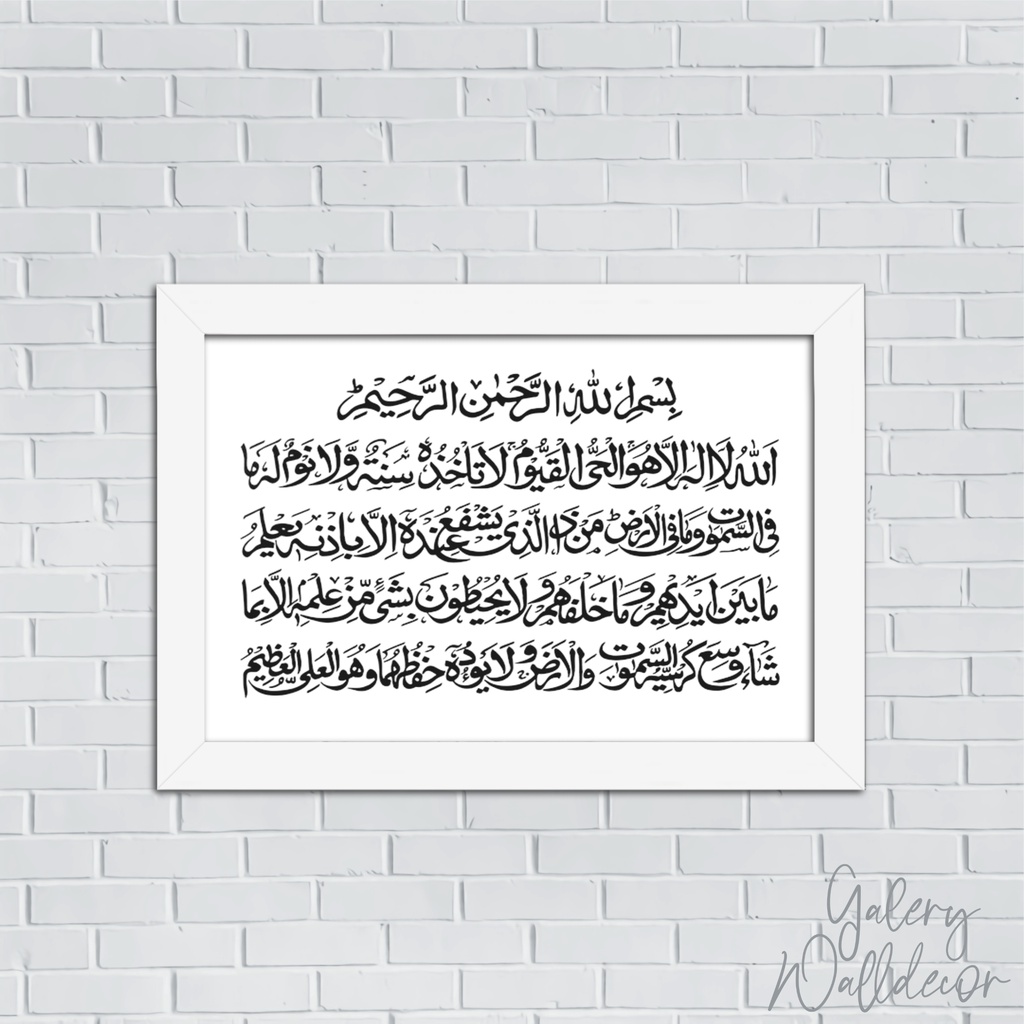 بِسْمِ اللهِ الرَّحْمٰنِ الرَّحِيْمِ
اَللهُ لَا اِلٰهَ اِلَّا هُوَ الْحَیُّ الْقَيُّوْمُ لَا تَاْخُذُهٗ سِنَةٌ وَّلَا نَوْمٌ لَهٗ مَا
فِی السَّمٰوٰتِ وَمَا فِی الْاَرْضِ مَنْ ذَا الَّذِیْ يَشْفَعُ عِنْدَهٗ اِلَّا بِاِذْنِهٖ يَعْلَمُ
مَا بَيْنَ اَيْدِيْهِمْ وَمَا خَلْفَهُمْ وَلَا يُحِيْطُوْنَ بِشَیْءٍ مِّنْ عِلْمِهٖ اِلَّا بِمَا
شَآءَ وَسِعَ كُرْسِيُّهُ السَّمٰوٰتِ وَالْاَرْضَ وَلَا يَئُوْدُهٗ حِفْظُهُمَا وَهُوَ الْعَلِیُّ الْعَظِيْمُ
Galery
Walldecor